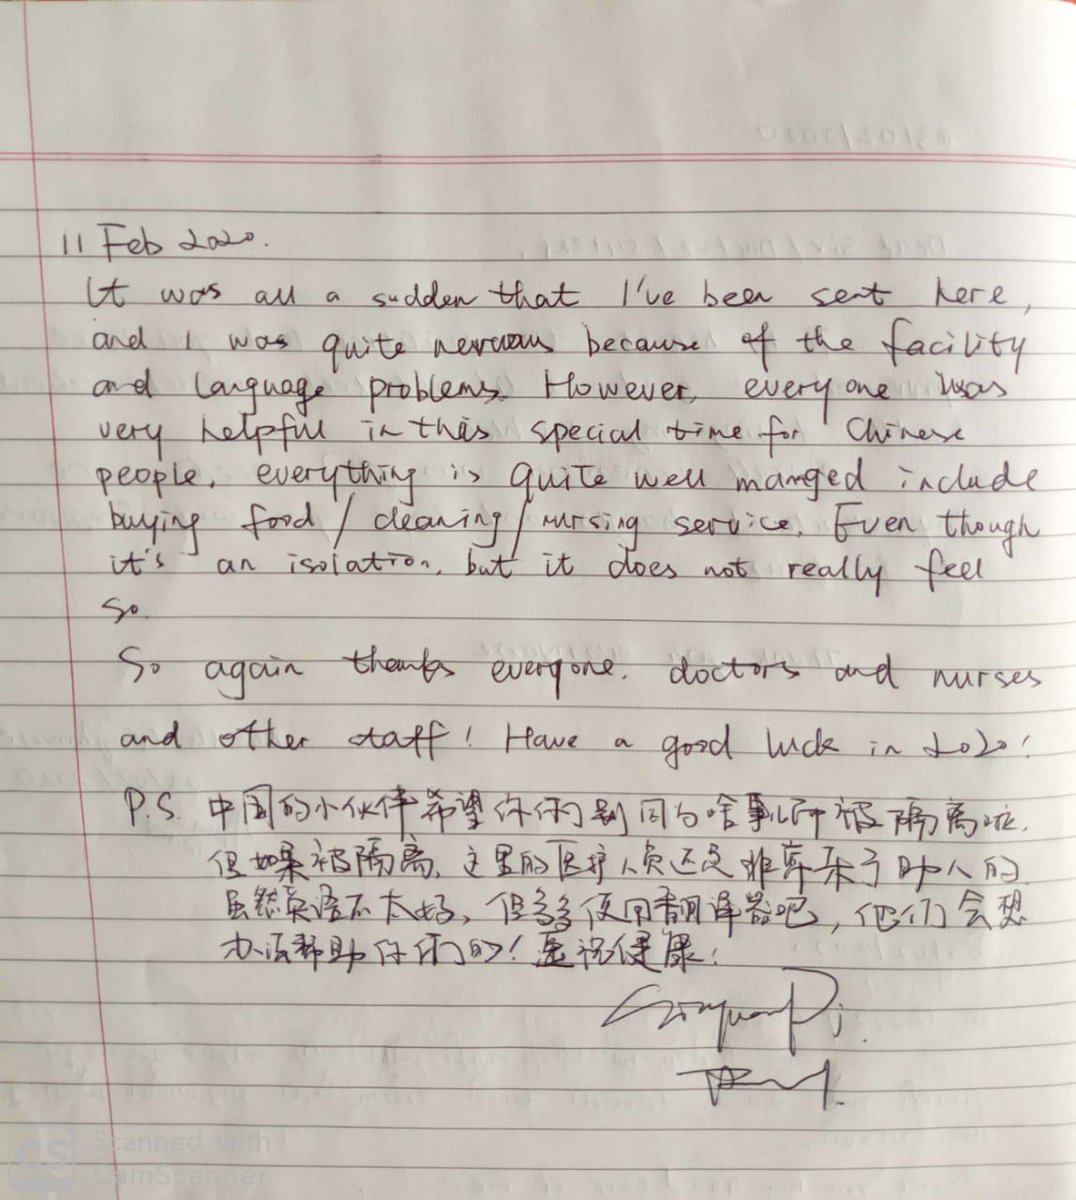 11 Feb 2020.
It was all a sudden that I've been sent here,
and I was quite nervous because of the facility
and language problems. However, everyone was
very helpful in this special time for Chinese
people, everything is quite well manged include
buying food / cleaning / nursing service. Even though
it's an isolation, but it does not really feel
so.
So again thanks everyone. doctors and nurses
and other staff! Have a good luck in 2020!
P.S. 中国的小伙伴希望你们别因为啥事儿被隔离啦.
但如果被隔离, 这里的医护人员还是非常乐于助人的.
虽然英语不太好, 但多多使用翻译器吧, 他们会想
办法帮助你们的! 遥祝健康!
Scanned with
CamScanner